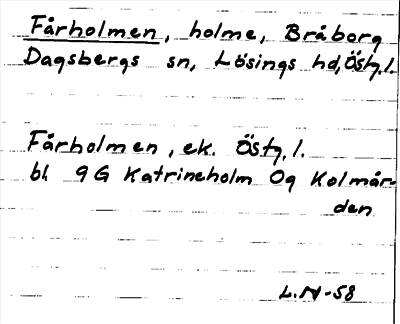 Fårholmen, holme, Bråborg
Dagsbergs sn, Lösings hd, Östg. l.
Fårholmen, ek. Östg. l.
bl. 9G Katrineholm Og Kolmår-
den
L.N-58